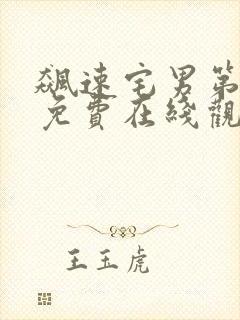 飆速宅男第
免費在綫觀
王玉虎